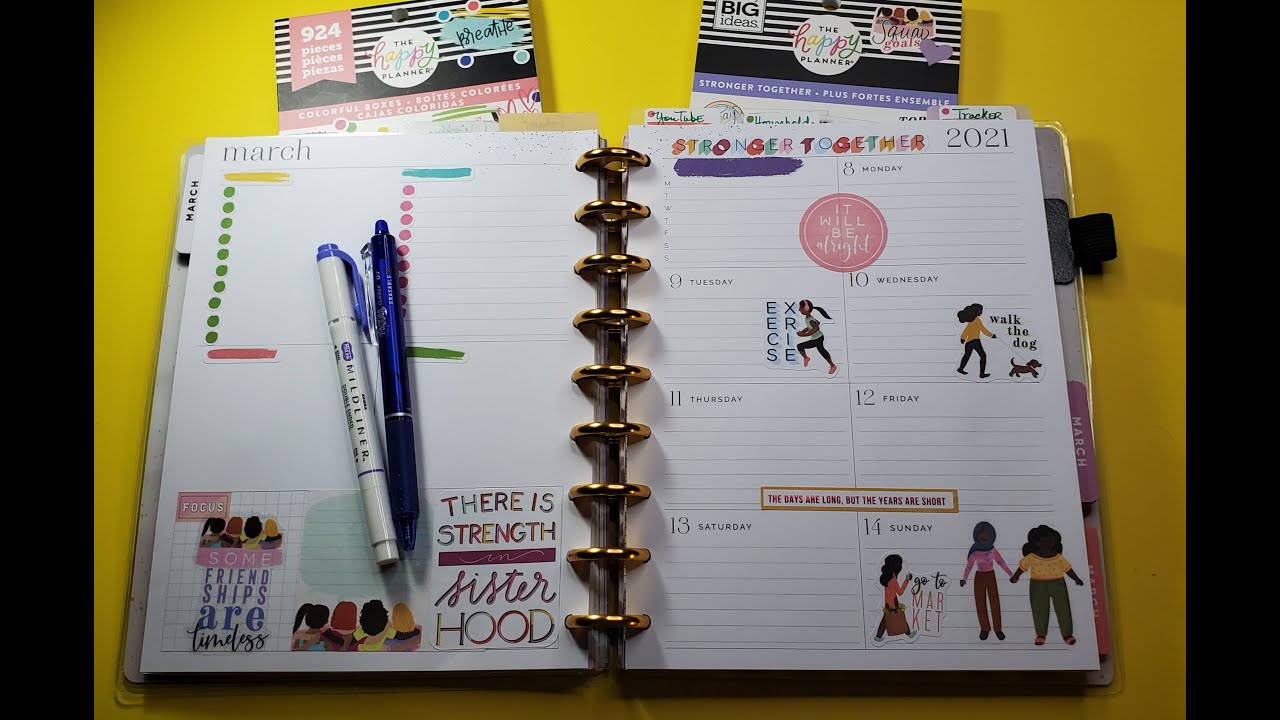 924
pieces
pièces
piezas
THE
happy
PLANNER
breathe
COLORFUL BOXES • BOÎTES COLORÉES
CAJAS COLORIDAS
BIG
ideas.
THE
happy
PLANNER
Squad
goals
STRONGER TOGETHER • PLUS FORTES ENSEMBLE
YouTube
Household
Tracker
MARCH
march
FOCUS
SOME
FRIEND
SHIPS
are
timeless
THERE IS
STRENGTH
in
sister
HOOD
MILDLINER
STRONGER TOGETHER
2021
M
T
W
T
F
S
S
8 MONDAY
IT
WILL
BE
alright
9 TUESDAY
EXERCISE
10 WEDNESDAY
walk
the
dog
11 THURSDAY
12 FRIDAY
THE DAYS ARE LONG, BUT THE YEARS ARE SHORT
13 SATURDAY
14 SUNDAY
go to
MAR
KET
MARCH
MARCH